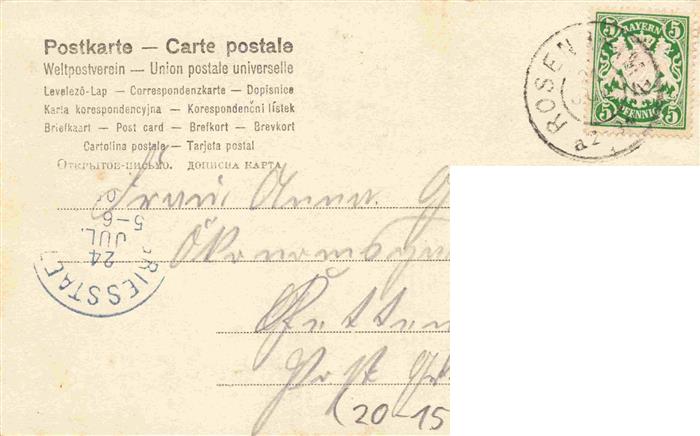 Postkarte — Carte postale
Weltpostverein — Union postale universelle
Levelező-Lap — Correspondenzkarte — Dopisnice
Karta korespondencyjna — Korespondenční lístek
Briefkaart — Post card — Brefkort — Brevkort
Cartolina postale — Tarjeta postal
Открытое письмо. дописна карта
5 BAYERN 5
5 PFENNIG 5
ROSEN
Frau Anna
5-6
24
JUL.
GRIESSTAE
Post
(20-15